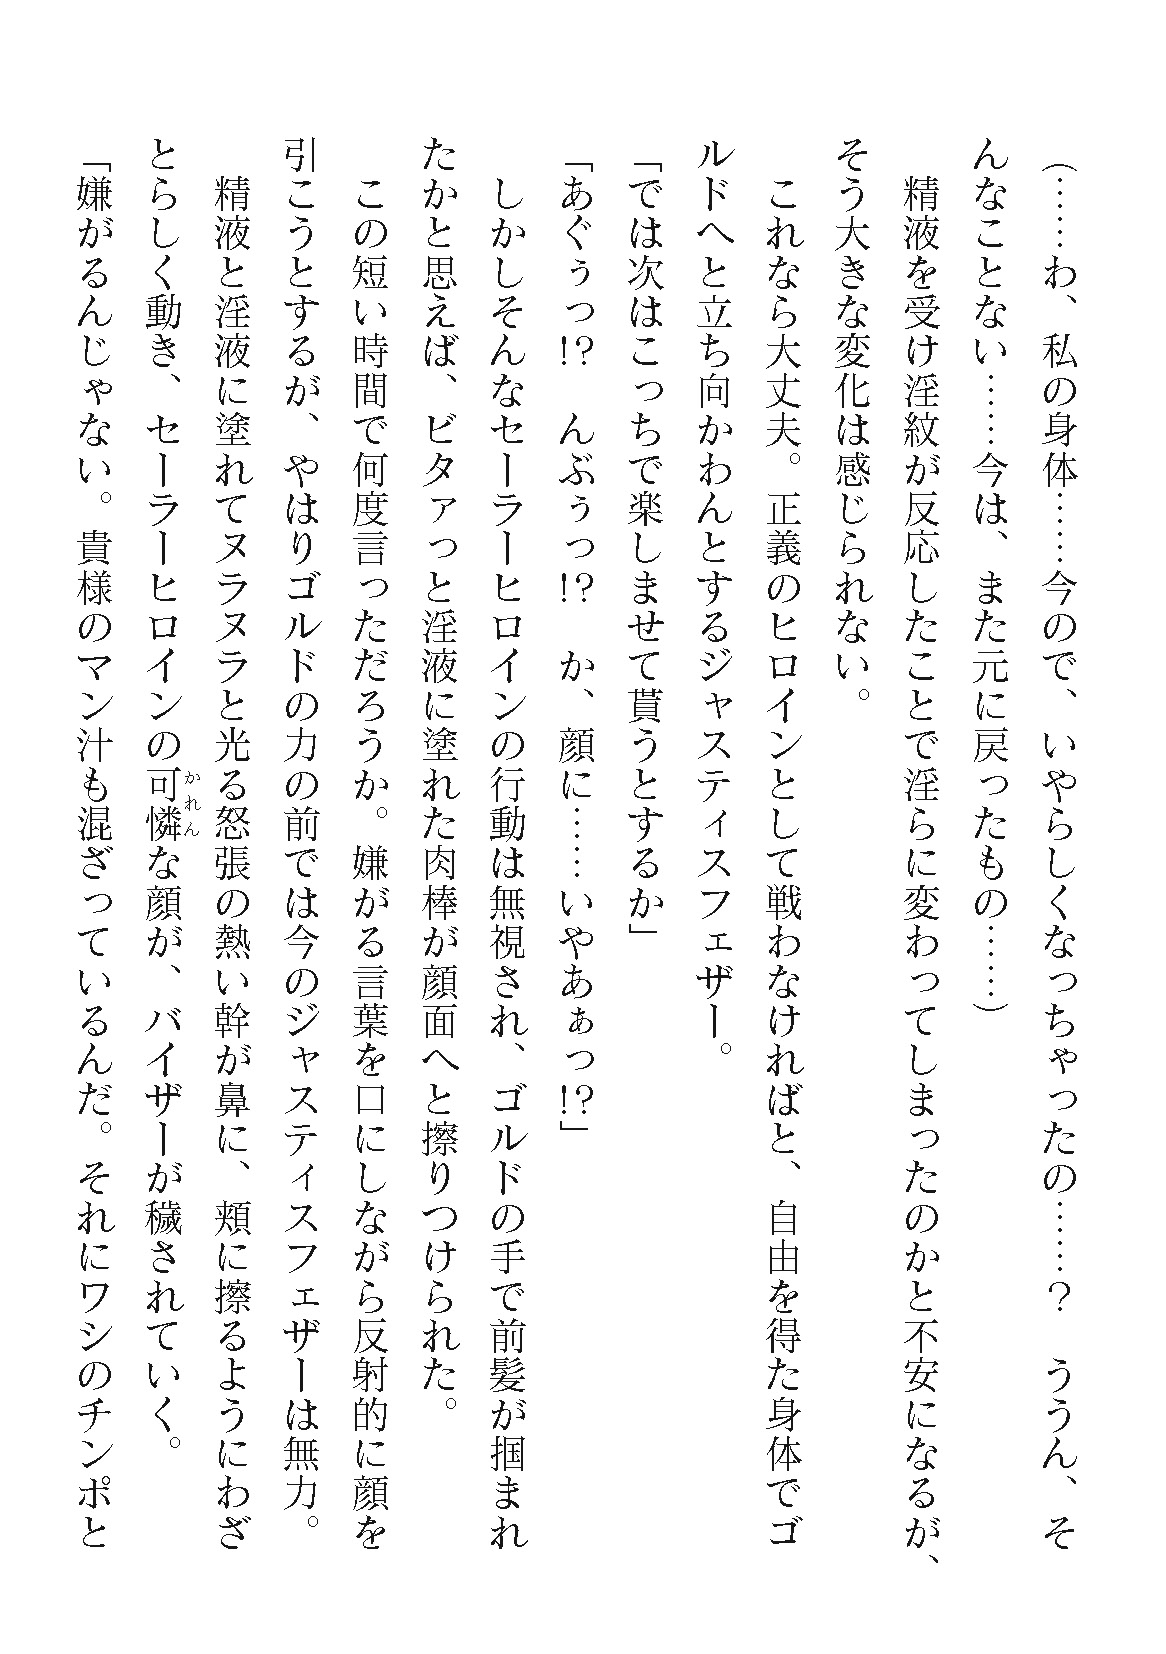 (……わ、私の身体……今ので、いやらしくなっちゃったの……？　ううん、そ
んなことない……今は、また元に戻ったもの……)
　精液を受け淫紋が反応したことで淫らに変わってしまったのかと不安になるが、
そう大きな変化は感じられない。
　これなら大丈夫。正義のヒロインとして戦わなければと、自由を得た身体でゴ
ルドへと立ち向かわんとするジャスティスフェザー。
「では次はこっちで楽しませて貰うとするか」
「あぐぅっ!?　んぶぅっ!?　か、顔に……いやあぁっ!?」
　しかしそんなセーラーヒロインの行動は無視され、ゴルドの手で前髪が掴まれ
たかと思えば、ビタァっと淫液に塗れた肉棒が顔面へと擦りつけられた。
　この短い時間で何度言っただろうか。嫌がる言葉を口にしながら反射的に顔を
引こうとするが、やはりゴルドの力の前では今のジャスティスフェザーは無力。
　精液と淫液に塗れてヌラヌラと光る怒張の熱い幹が鼻に、頬に擦るようにわざ
とらしく動き、セーラーヒロインの可憐な顔が、バイザーが穢されていく。
「嫌がるんじゃない。貴様のマン汁も混ざっているんだ。それにワシのチンポと